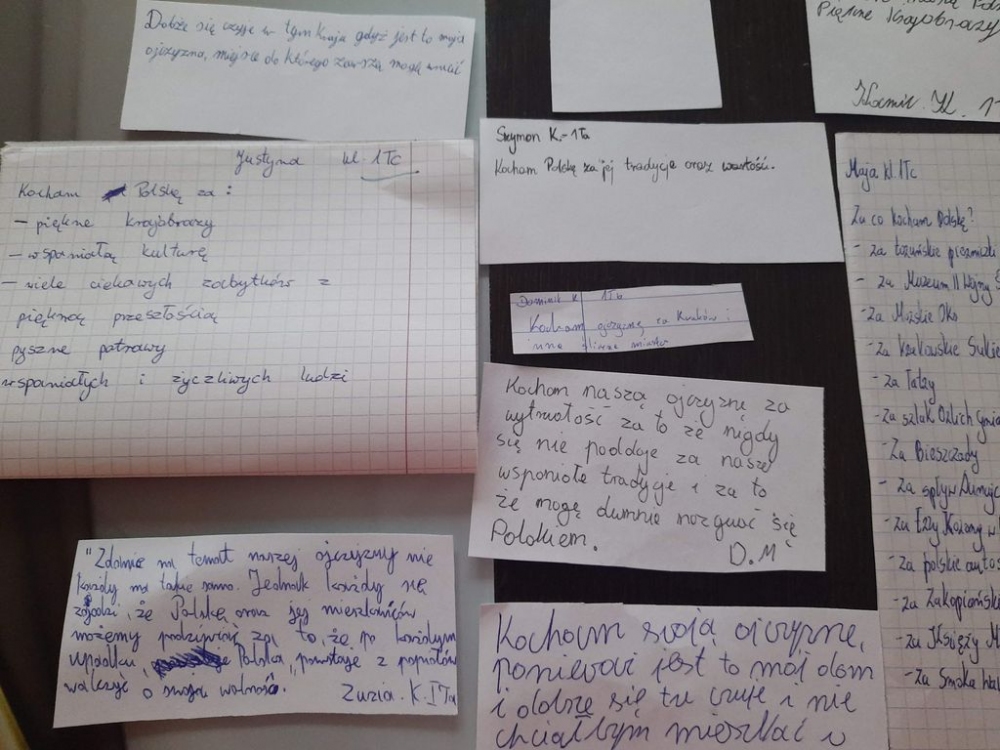 Dobże się czuję w tym kraju gdyż jest to moja
ojczyzna, miejsce do którego zawszą mogę wrócić
Justyna kl. 1Tc
Kocham Polskę za:
- piękne krajobrazy
- wspaniałą kulturę
- wiele ciekawych zabytków z
piękną przeszłością
pyszne potrawy
wspaniałych i życzliwych ludzi
"Zdanie na temat naszej ojczyzny nie
każdy ma takie samo. Jednak każdy się
zgodzi, że Polskę oraz jej mieszkańców
możemy podziwiać za to, że po każdym
upadku, Polska, powstaje z popiołów
walcząc o swoją wolność.
Zuzia. K. ITa
Szymon K.-1Ta
Kocham Polskę za jej tradycje oraz wartości.
Dominik K 1Ta
Kocham ojczyznę za Kraków i
inne śliczne miasta
Kocham naszą ojczyznę za
wytrwałość za to że nigdy
się nie poddaje za nasze
wspaniałe tradycje i za to
że mogę dumnie nazywać się
Polakiem.
D.M
Kocham swoją ojczyznę,
ponieważ jest to mój dom
i dobrze się tu czuję i nie
chciałbym mieszkać w
Piękne Krajobrazy
Kamil. K. 1
Maja kl. 1Tc
Za co kocham Polskę?
- Za toruńskie pierniczki
- Za Muzeum II Wojny Ś
- Za Morskie Oko
- Za krakowskie Sukie
- Za Tatry
- Za szlak Orlich Gnia
- Za Bieszczady
- Za spływ Dunaj
- Za
- Za polskie
- Za Zakopiańsk
- Za Księży M
- Za Smoka Wa